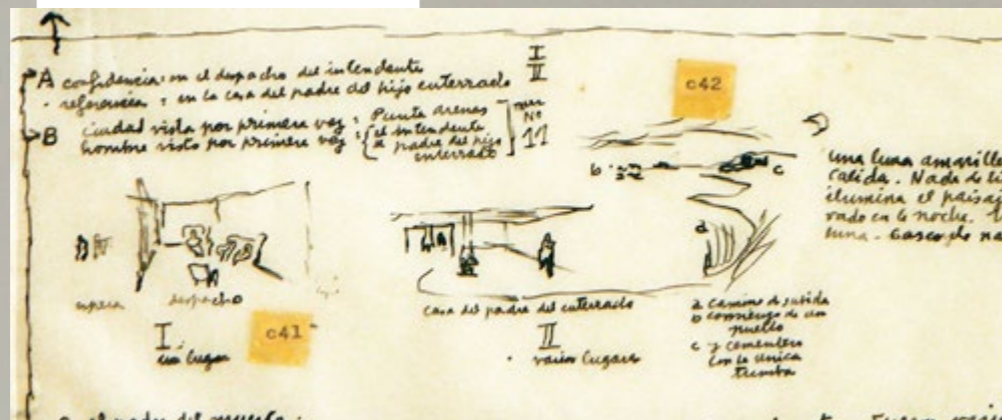 A confidencia: en el despacho del intendente
· referencia: en la casa del padre del hijo enterrado
I
II
B ciudad vista por primera vez: Punta arenas
hombre visto por primera vez: el intendente
el padre del hijo
enterrado
Nº
11
c42
b
c
a
una luna amarilla
calida. Nada de
ilumina el paisaj
en la noche.
luna.
espera
despacho
casa del padre del enterrado
a camino de subida
b comienzo de un
pueblo
c y cementerio
con la unica
tumba
I
un lugar
c41
II
· varios lugares